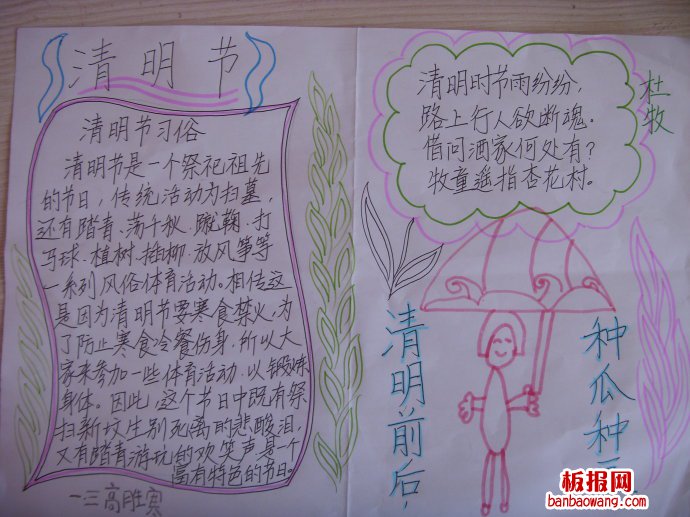 清明节
清明节习俗
清明节是一个祭祀祖先
的节日，传统活动为扫墓，
还有踏青、荡千秋、蹴鞠、打
马球、植树、插柳、放风筝等
一系列风俗体育活动。相传这
是因为清明节要寒食禁火，为
了防止寒食冷餐伤身，所以大
家来参加一些体育活动，以锻炼
身体。因此，这个节日中既有祭
扫新坟生别死离的悲酸泪，
又有踏青游玩的欢笑声是一个
富有特色的节日。
一三高胜寒
清明时节雨纷纷，
路上行人欲断魂。
借问酒家何处有？
牧童遥指杏花村。
杜牧
清明前后，
种瓜种
板报网
banbaowang.com